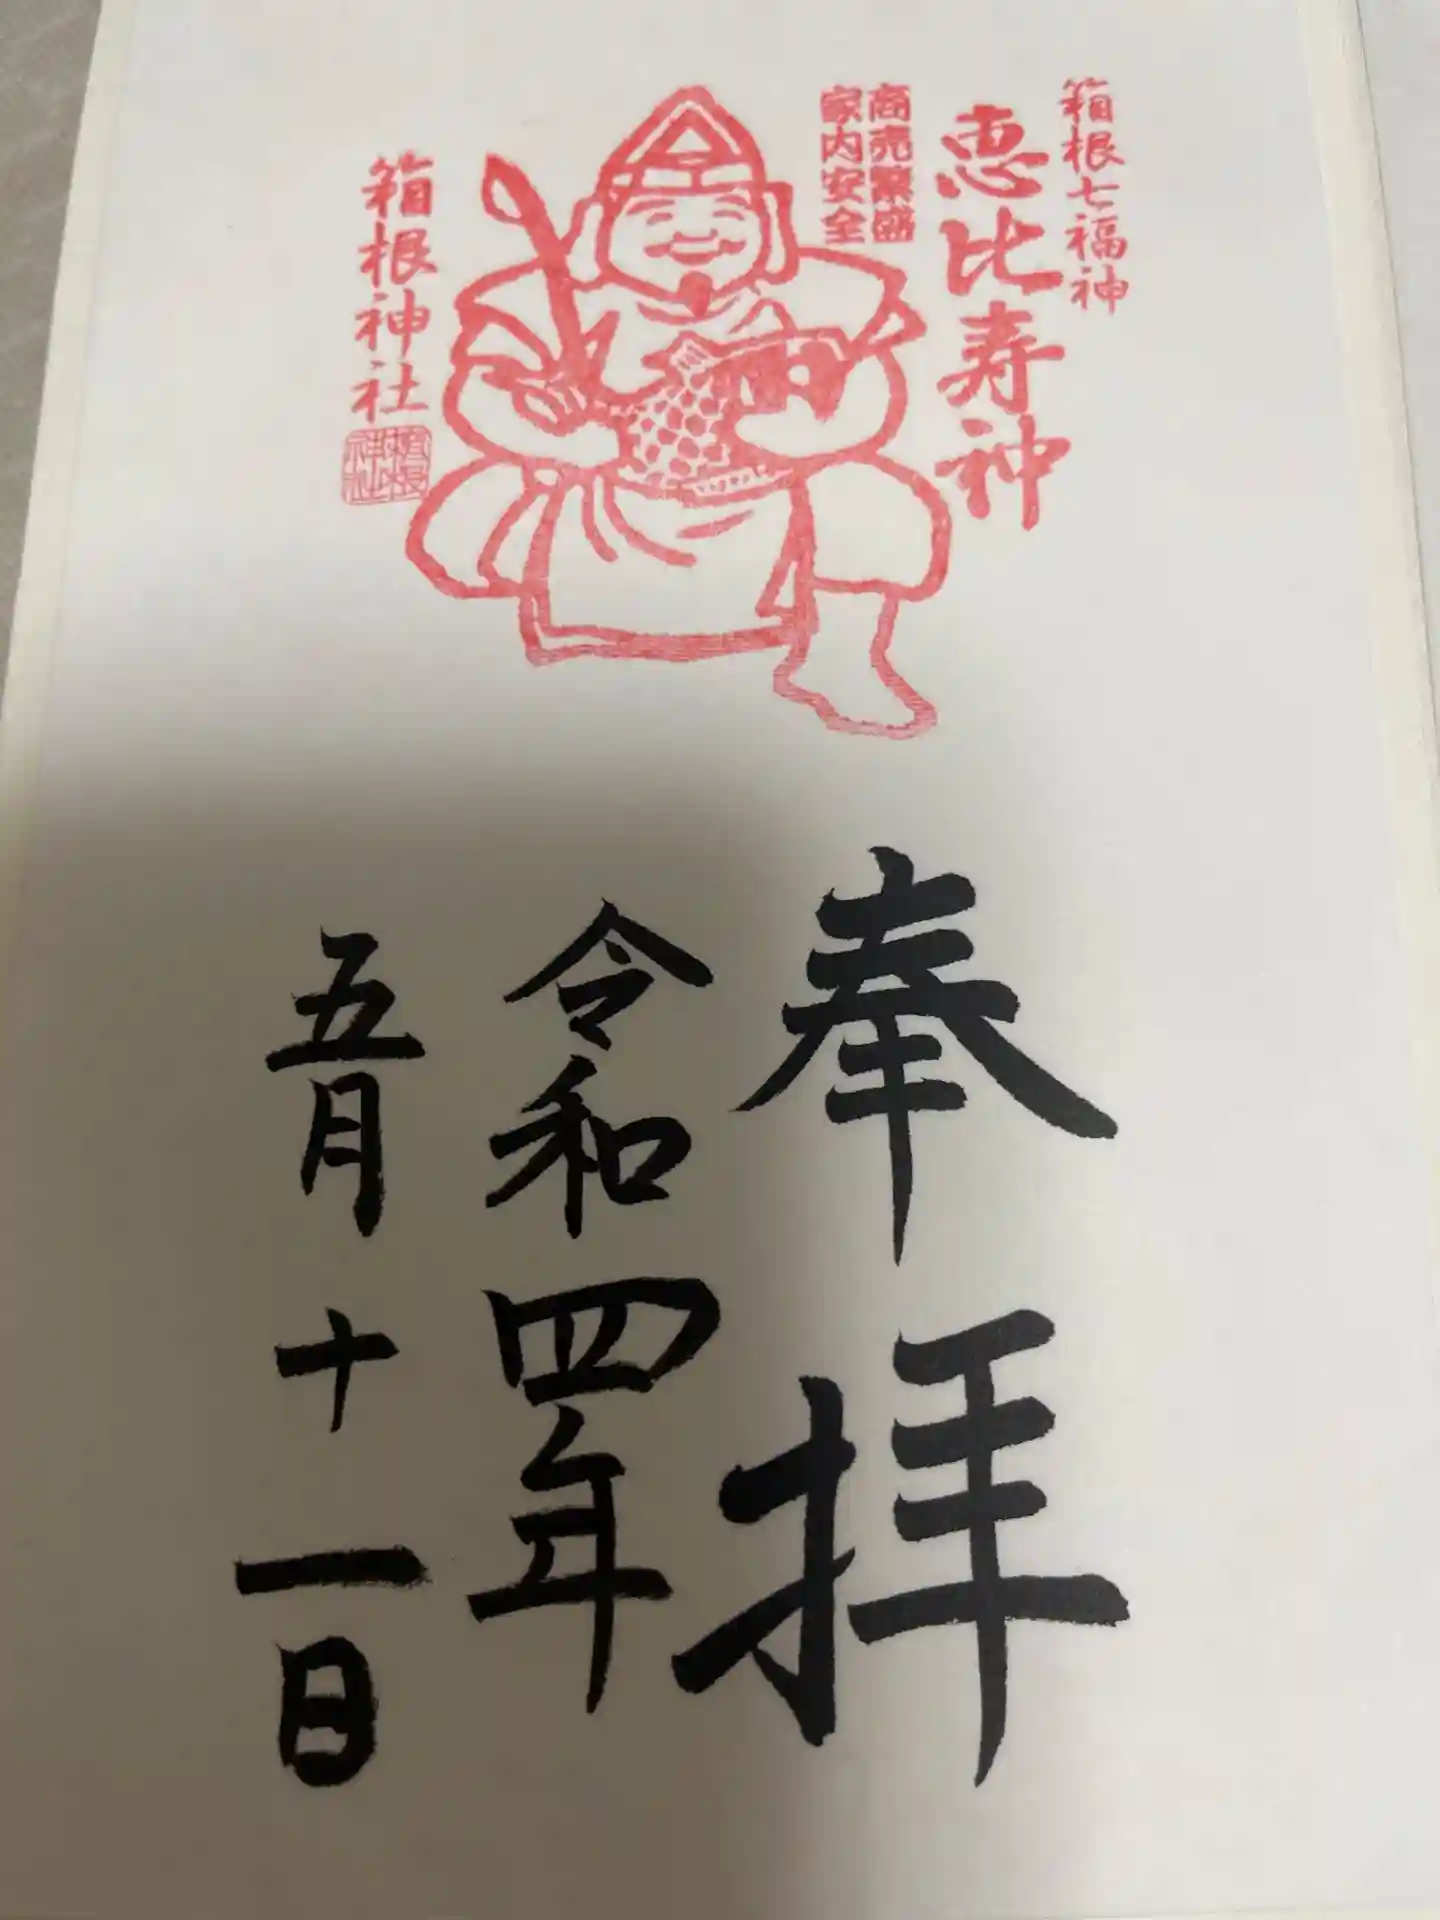 箱根七福神
恵比寿神
商売繁盛
家内安全
箱根神社
箱根
神社
奉拝
令和四年
五月十一日